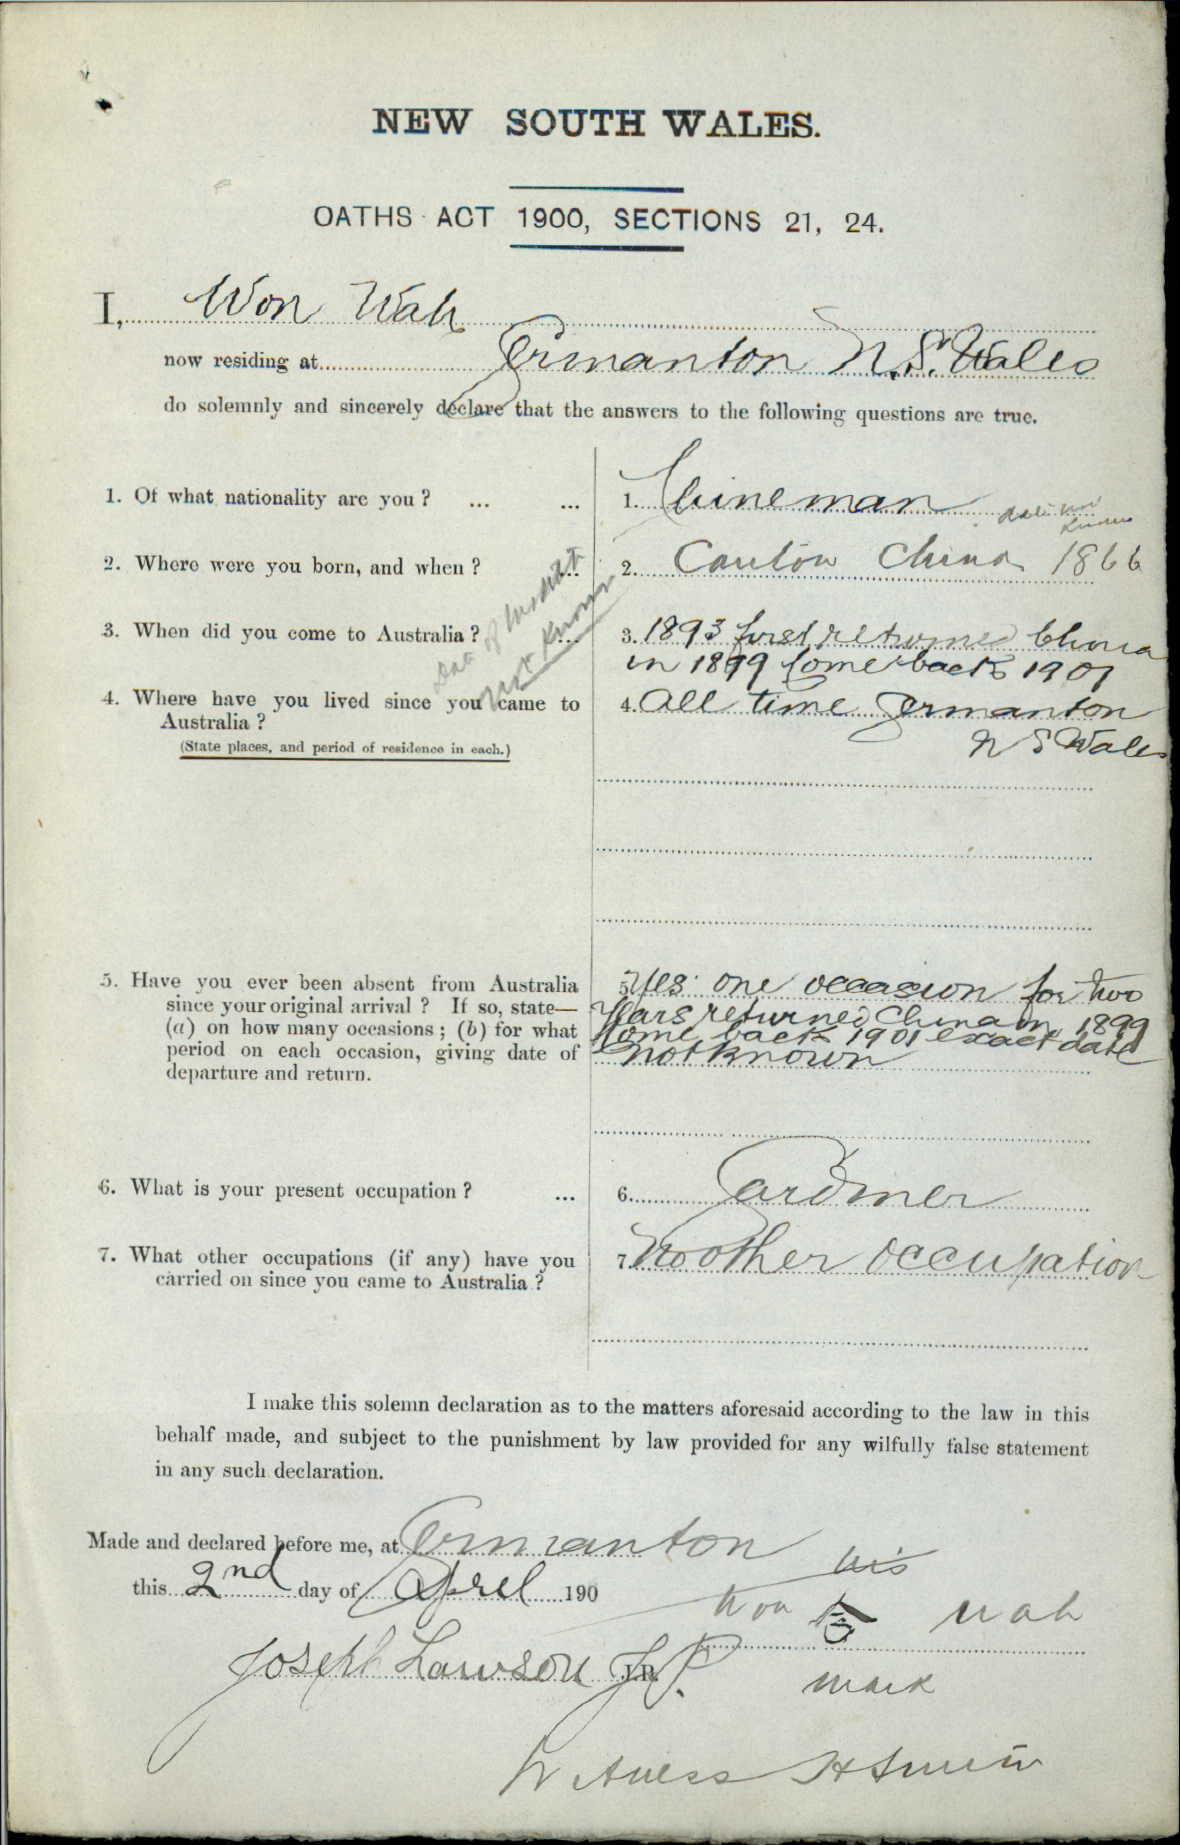 NEW SOUTH WALES.
OATHS ACT 1900, SECTIONS 21, 24.
I, Won Wah
now residing at Germanton N.S. Wales
do solemnly and sincerely declare that the answers to the following questions are true.
1. Of what nationality are you ? ... ...
1. Chineman
date not
known
2. Where were you born, and when ? ...
2. Canton China 1866
3. When did you come to Australia ? ...
3. 1893 first returned China
in 1899 Come back 1901
not known
4. Where have you lived since you came to
Australia ?
(State places, and period of residence in each.)
4. All time Germanton
N S Wales
5. Have you ever been absent from Australia
since your original arrival ? If so, state—
(a) on how many occasions ; (b) for what
period on each occasion, giving date of
departure and return.
5 Yes one occasion for two
Years returned China in 1899
Come back 1901 exact date
not known
6. What is your present occupation ? ...
6. Gardiner
7. What other occupations (if any) have you
carried on since you came to Australia ?
7. No other occupation
I make this solemn declaration as to the matters aforesaid according to the law in this
behalf made, and subject to the punishment by law provided for any wilfully false statement
in any such declaration.
Made and declared before me, at Germanton
this 2nd day of April 190
his
Won Wah
mark
Joseph Lawson J.P. J.P.
Witness H Smith